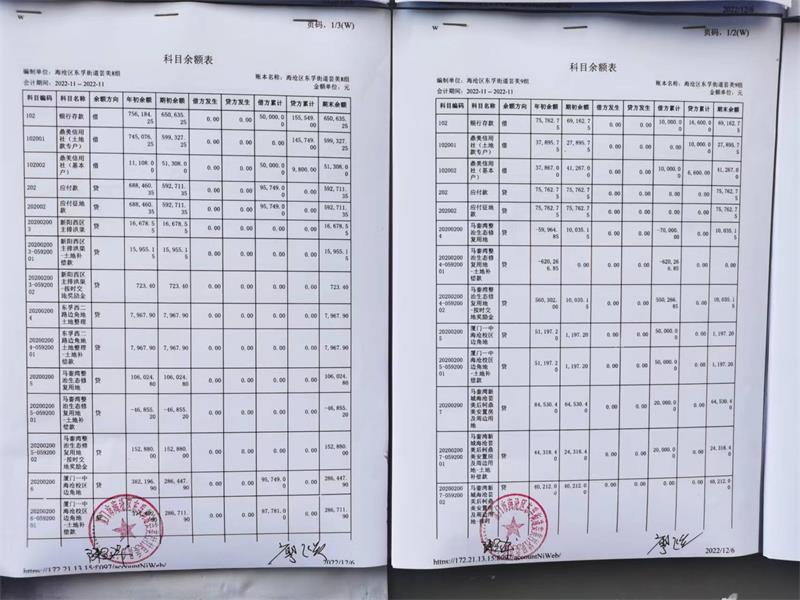 w
页码，1/3(W)
科目余额表
编制单位：海沧区东孚街道芸美8组
账本名称：海沧区东孚街道芸美8组
会计期间：2022-11－2022-11
金额单位：元
科目编码 科目名称 余额方向 年初余额 期初余额 借方发生 贷方发生 借方累计 贷方累计 期末余额
102 银行存款 借 756,184.25 650,635.25 0.00 0.00 50,000.00 155,549.00 650,635.25
102001 鼎美信用社（土地款专户） 借 745,076.25 599,327.25 0.00 0.00 0.00 145,749.00 599,327.25
102002 鼎美信用社（基本户） 借 11,108.00 51,308.00 0.00 0.00 50,000.00 9,800.00 51,308.00
202 应付款 贷 688,460.35 592,711.35 0.00 0.00 95,749.00 0.00 592,711.35
202002 应付征地款 贷 688,460.35 592,711.35 0.00 0.00 95,749.00 0.00 592,711.35
202002003 新阳西区主排洪渠 贷 16,678.55 16,678.55 0.00 0.00 0.00 0.00 16,678.55
202002003-05920001 新阳西区主排洪渠-土地补偿款 贷 15,955.15 15,955.15 0.00 0.00 0.00 0.00 15,955.15
202002003-05920002 新阳西区主排洪渠-按时交地奖励金 贷 723.40 723.40 0.00 0.00 0.00 0.00 723.40
202002004 东孚西二路边角地土地整理 贷 7,967.90 7,967.90 0.00 0.00 0.00 0.00 7,967.90
202002004-05920001 东孚西二路边角地土地整理-土地补偿款 贷 7,967.90 7,967.90 0.00 0.00 0.00 0.00 7,967.90
202002005 马銮湾整治生态修复用地 贷 106,024.80 106,024.80 0.00 0.00 0.00 0.00 106,024.80
202002005-05920001 马銮湾整治生态修复用地-土地补偿款 贷 -46,855.20 -46,855.20 0.00 0.00 0.00 0.00 -46,855.20
202002005-05920002 马銮湾整治生态修复用地-按时交地奖励金 贷 152,880.00 152,880.00 0.00 0.00 0.00 0.00 152,880.00
202002006 厦门一中海沧校区边角地 贷 382,196.90 286,447.90 0.00 0.00 95,749.00 0.00 286,447.90
286,711.90 0.00 0.00 87,781.00 0.00 286,711.90
https://172.21.13.15:8097/accountNiWeb/
2022/12/6
2022/12/6
w
页码，1/2(W)
科目余额表
编制单位：海沧区东孚街道芸美9组
账本名称：海沧区东孚街道芸美9组
会计期间：2022-11－2022-11
金额单位：元
科目编码 科目名称 余额方向 年初余额 期初余额 借方发生 贷方发生 借方累计 贷方累计 期末余额
102 银行存款 借 75,762.75 69,162.75 0.00 0.00 10,000.00 16,600.00 69,162.75
102001 鼎美信用社（土地款专户） 借 37,895.75 27,895.75 0.00 0.00 0.00 10,000.00 27,895.75
102002 鼎美信用社（基本户） 借 37,867.00 41,267.00 0.00 0.00 10,000.00 6,600.00 41,267.00
202 应付款 贷 75,762.75 75,762.75 0.00 0.00 0.00 0.00 75,762.75
202002 应付征地款 贷 75,762.75 75,762.75 0.00 0.00 0.00 0.00 75,762.75
202002004 马銮湾整治生态修复用地 贷 -59,964.85 10,035.15 0.00 0.00 -70,000.00 0.00 10,035.15
202002004-05920001 马銮湾整治生态修复用地-土地补偿款 贷 -620,266.85 0.00 0.00 0.00 -620,266.85 0.00 0.00
202002004-05920002 马銮湾整治生态修复用地-按时交地奖励金 贷 560,302.00 10,035.15 0.00 0.00 550,266.85 0.00 10,035.15
202002005 厦门一中海沧校区边角地 贷 51,197.20 1,197.20 0.00 0.00 50,000.00 0.00 1,197.20
202002005-05920001 厦门一中海沧校区边角地-土地补偿款 贷 51,197.20 1,197.20 0.00 0.00 50,000.00 0.00 1,197.20
202002007 马銮湾新城海沧芸美后柯鼎美安置房及周边用地 贷 84,530.40 64,530.40 0.00 0.00 20,000.00 0.00 64,530.40
202002007-05920001 马銮湾新城海沧芸美后柯鼎美安置房及周边用地-土地补偿款 贷 44,318.40 24,318.40 0.00 0.00 20,000.00 0.00 24,318.40
202002007-05920002 马銮湾新城海沧芸美后柯鼎美安置房及周边用地-按时 贷 40,212.00 40,212.00 0.00 0.00 0.00 0.00 40,212.00
https://172.21.13.15:8097/accountNiWeb/
2022/12/6